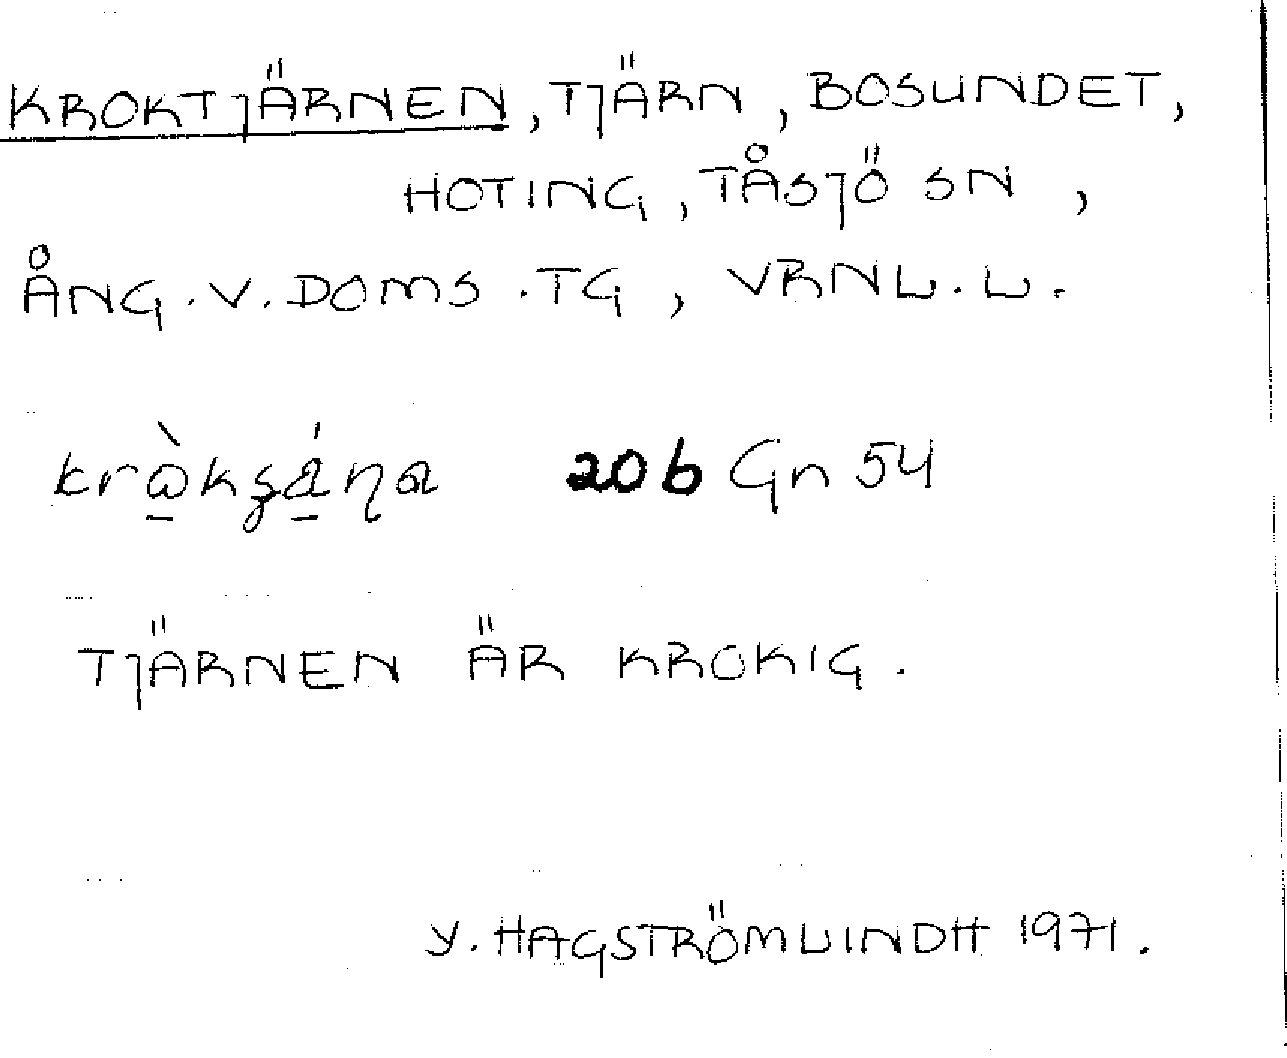 KROKTJÄRNEN, TJÄRN, BOSUNDET,
HOTING, TÅSJÖ SN,
ÅNG. V. DOMS. TG, VRNL. L.
20b Gn 54
TJÄRNEN ÄR KROKIG.
Y. HAGSTRÖM LINDH 1971.